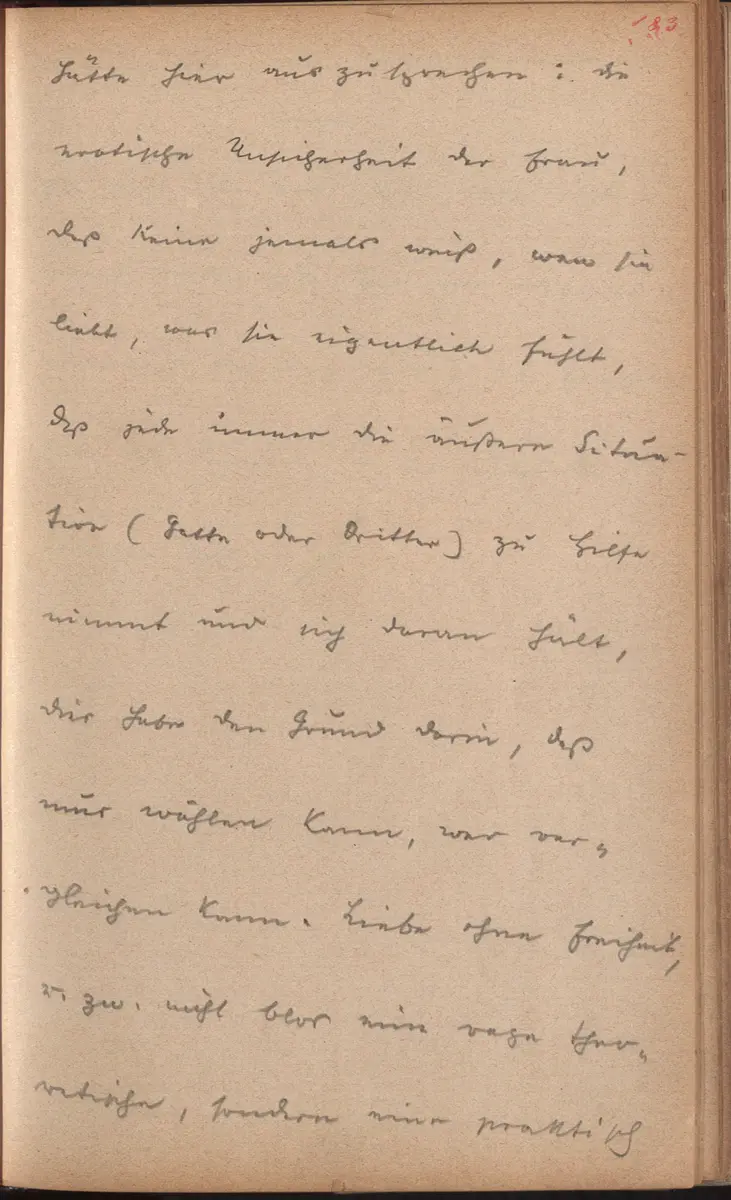 183
hätte hier auszusprechen: die
erotische Unsicherheit der Frau,
daß keine jemals weiß, wen sie
liebt, was sie eigentlich fühlt,
daß jede immer die äußere Situa-
tion (Gatte oder Dritter) zu Hilfe
nimmt und sich daran hält,
dies habe den Grund darin, daß
nur wählen kann, wer ver-
gleichen kann. Liebe ohne Freiheit,
u. zw. nicht blos eine vage theo-
retische, sondern eine praktisch